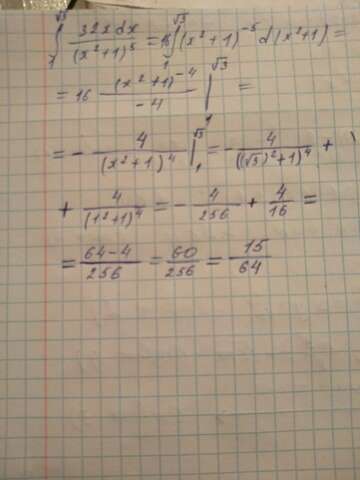 ∫₁^√3 32xdx/(x²+1)⁵ = 16∫₁^√3 (x²+1)⁻⁵ d(x²+1) =
= 16 (x²+1)⁻⁴/-4 |₁^√3 =
= - 4/(x²+1)⁴ |₁^√3 = - 4/((√3)²+1)⁴ +
+ 4/(1²+1)⁴ = - 4/256 + 4/16 =
= 64-4/256 = 60/256 = 15/64